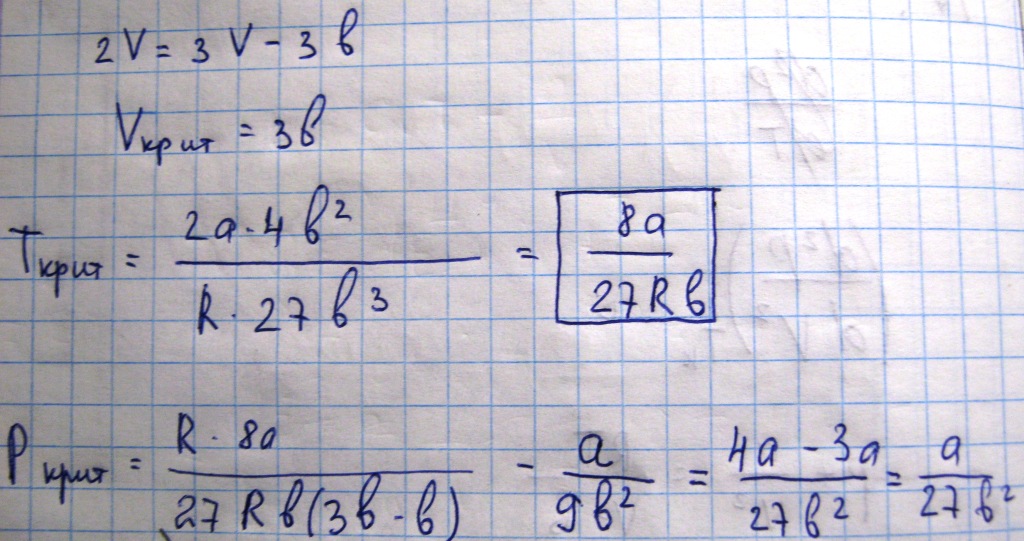 2V = 3V - 3в
Vкрит = 3в
Tкрит = 2a·4в² / R·27в³ = 8a / 27Rв
Pкрит = R·8a / 27Rв(3в-в) - a / 9в² = 4a-3a / 27в² = a / 27в²